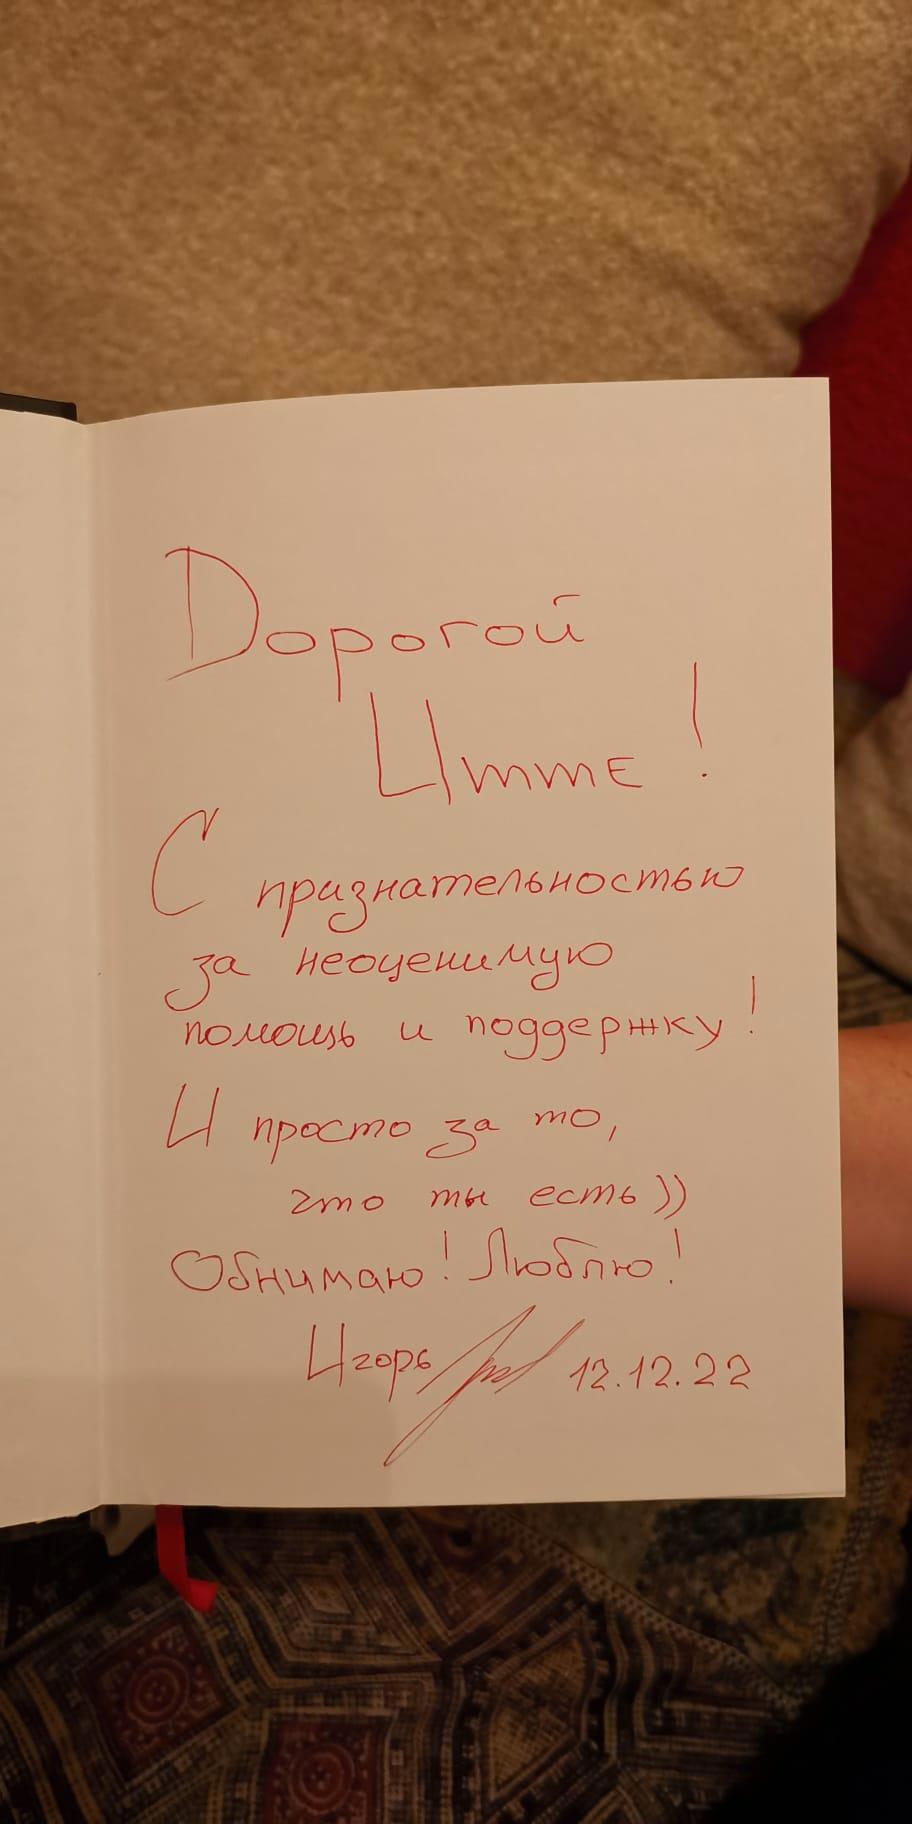 Дорогой
Итте!
С признательностью
за неоценимую
помощь и поддержку!
И просто за то,
что ты есть))
Обнимаю! Люблю!
Игорь 12.12.22